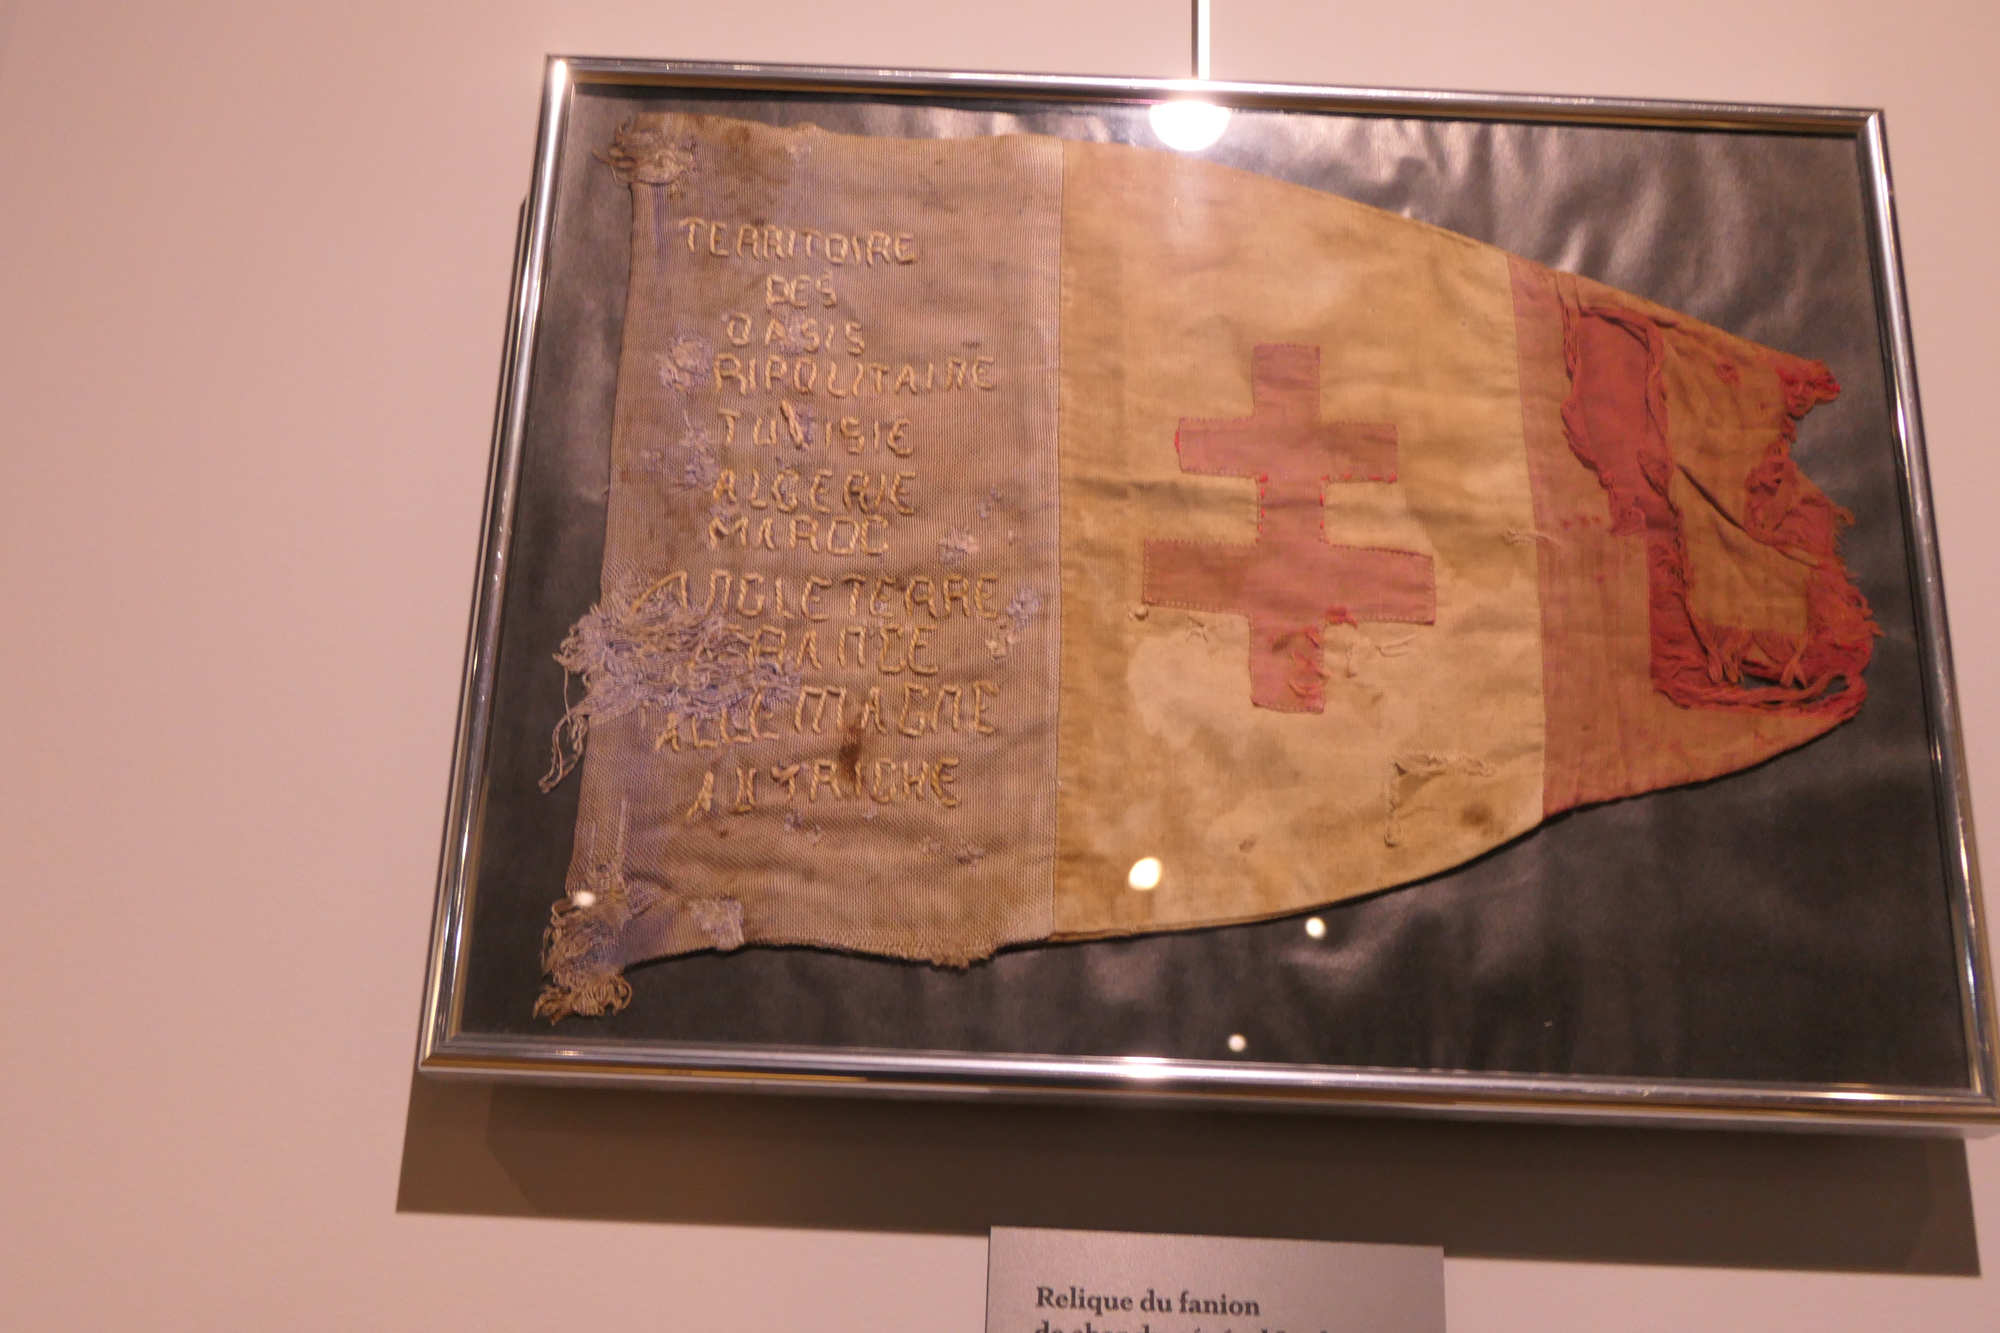 TERRITOIRE
DES
OASIS
RIPOLITAINE
TUNISIE
ALGERIE
MAROC
ANGLETERRE
FRANCE
ALLEMAGNE
AUTRICHE
Relique du fanion
de char du